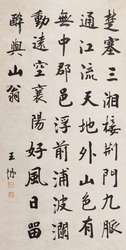 楚塞三湘接荊門九派
通江流天地外山色有
無中郡邑浮前浦波瀾
動遠空襄陽好風日留
醉與山翁
王